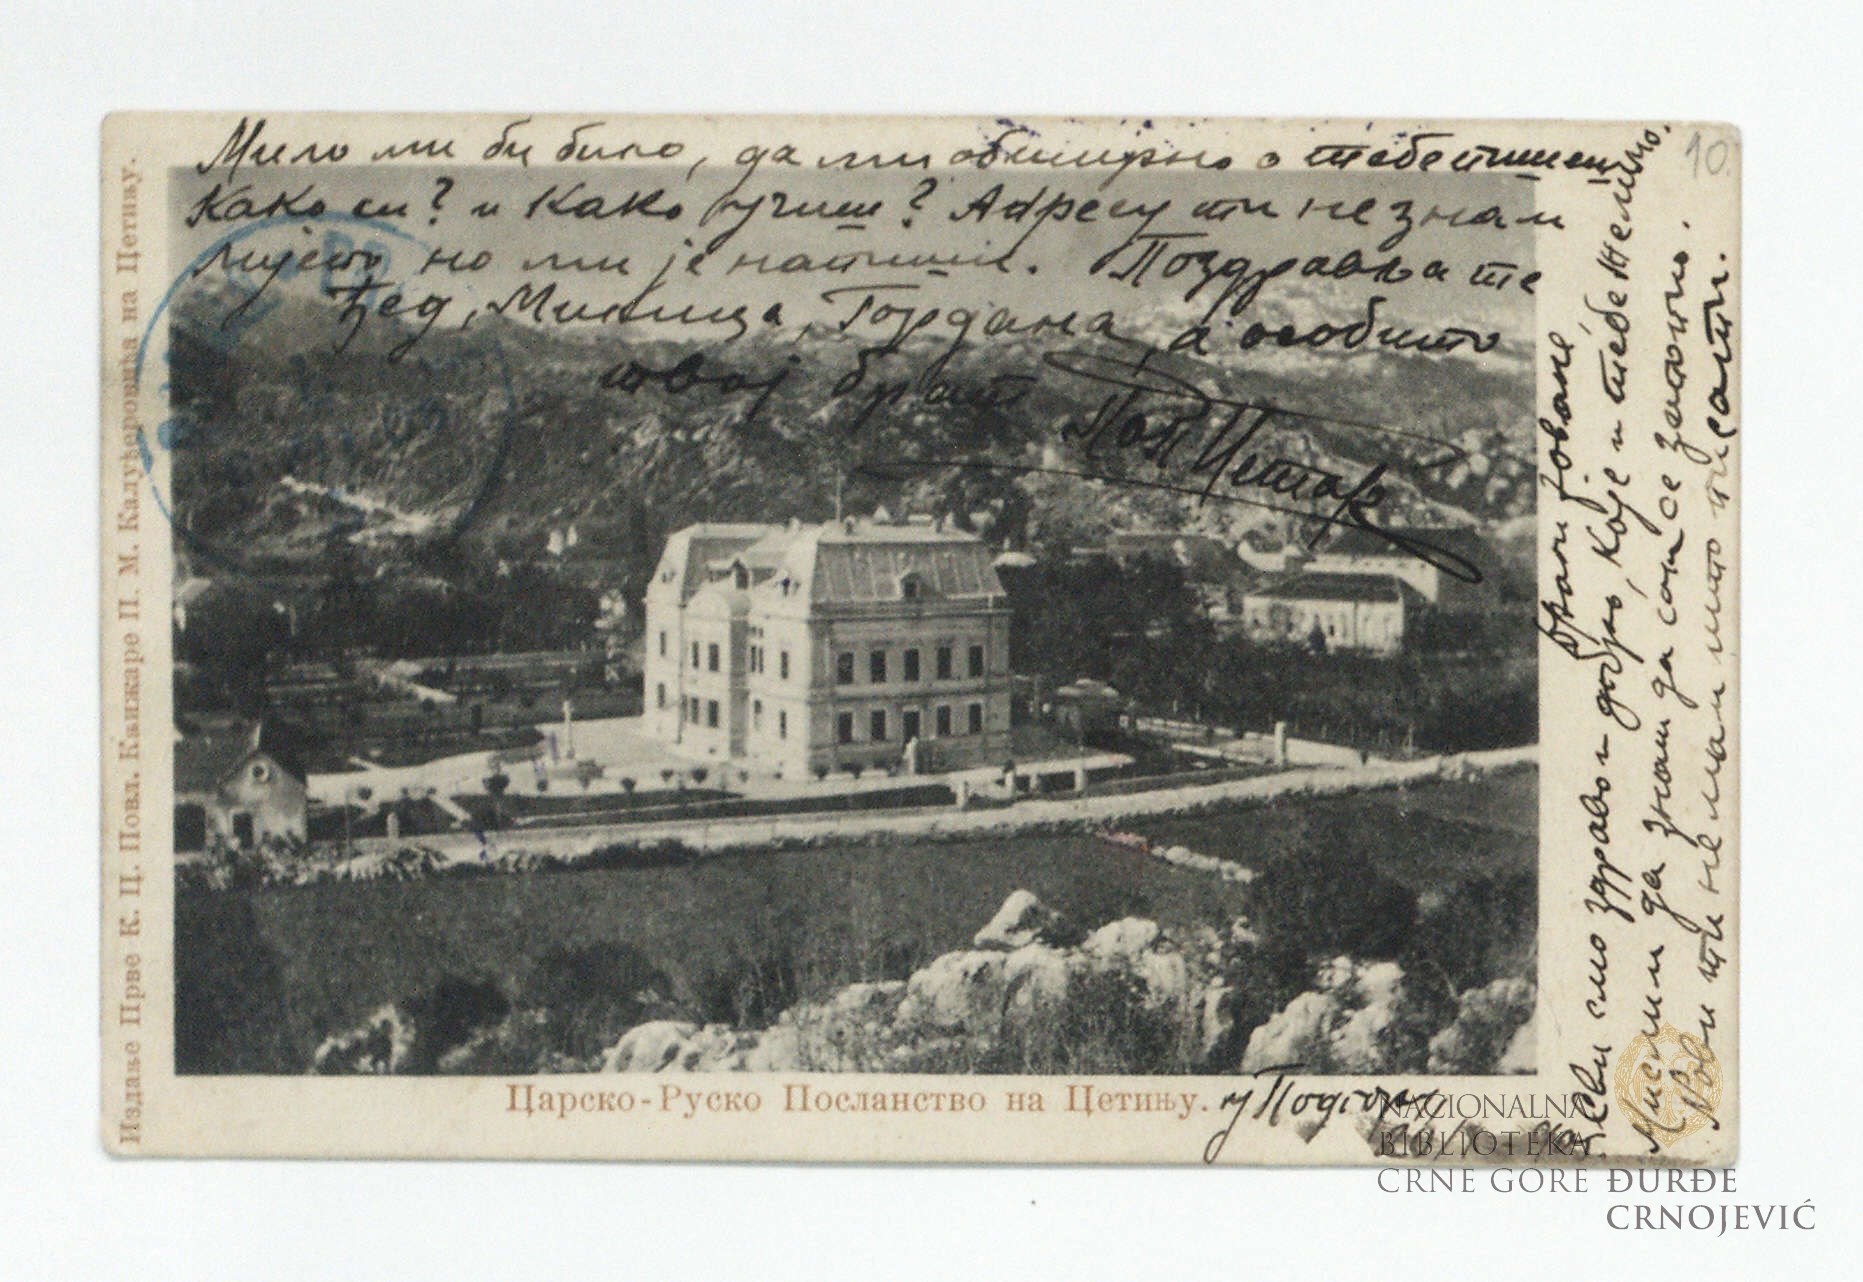 Мило ми би било, да ми обширно о тебе пишеш
Како си? и Како учиш? Адресу ти не знам
мјесто но ми је напиши. Поздравља те
Ђед, Милица, Гордана, а особито
твој брат
Поп Петар
10.
Издање Прве К. Ц. Повл. Књижаре П. М. Калуђеровића на Цетињу.
Драги Јоване
Сви смо здраво и добро, Које и тебе желимо.
Мислим да знаш да сам се запопио.
Нови ти немам што писати.
Царско-Руско Посланство на Цетињу.
у Подгор
NACIONALNA
BIBLIOTEKA
CRNE GORE ĐURĐE
CRNOJEVIĆ